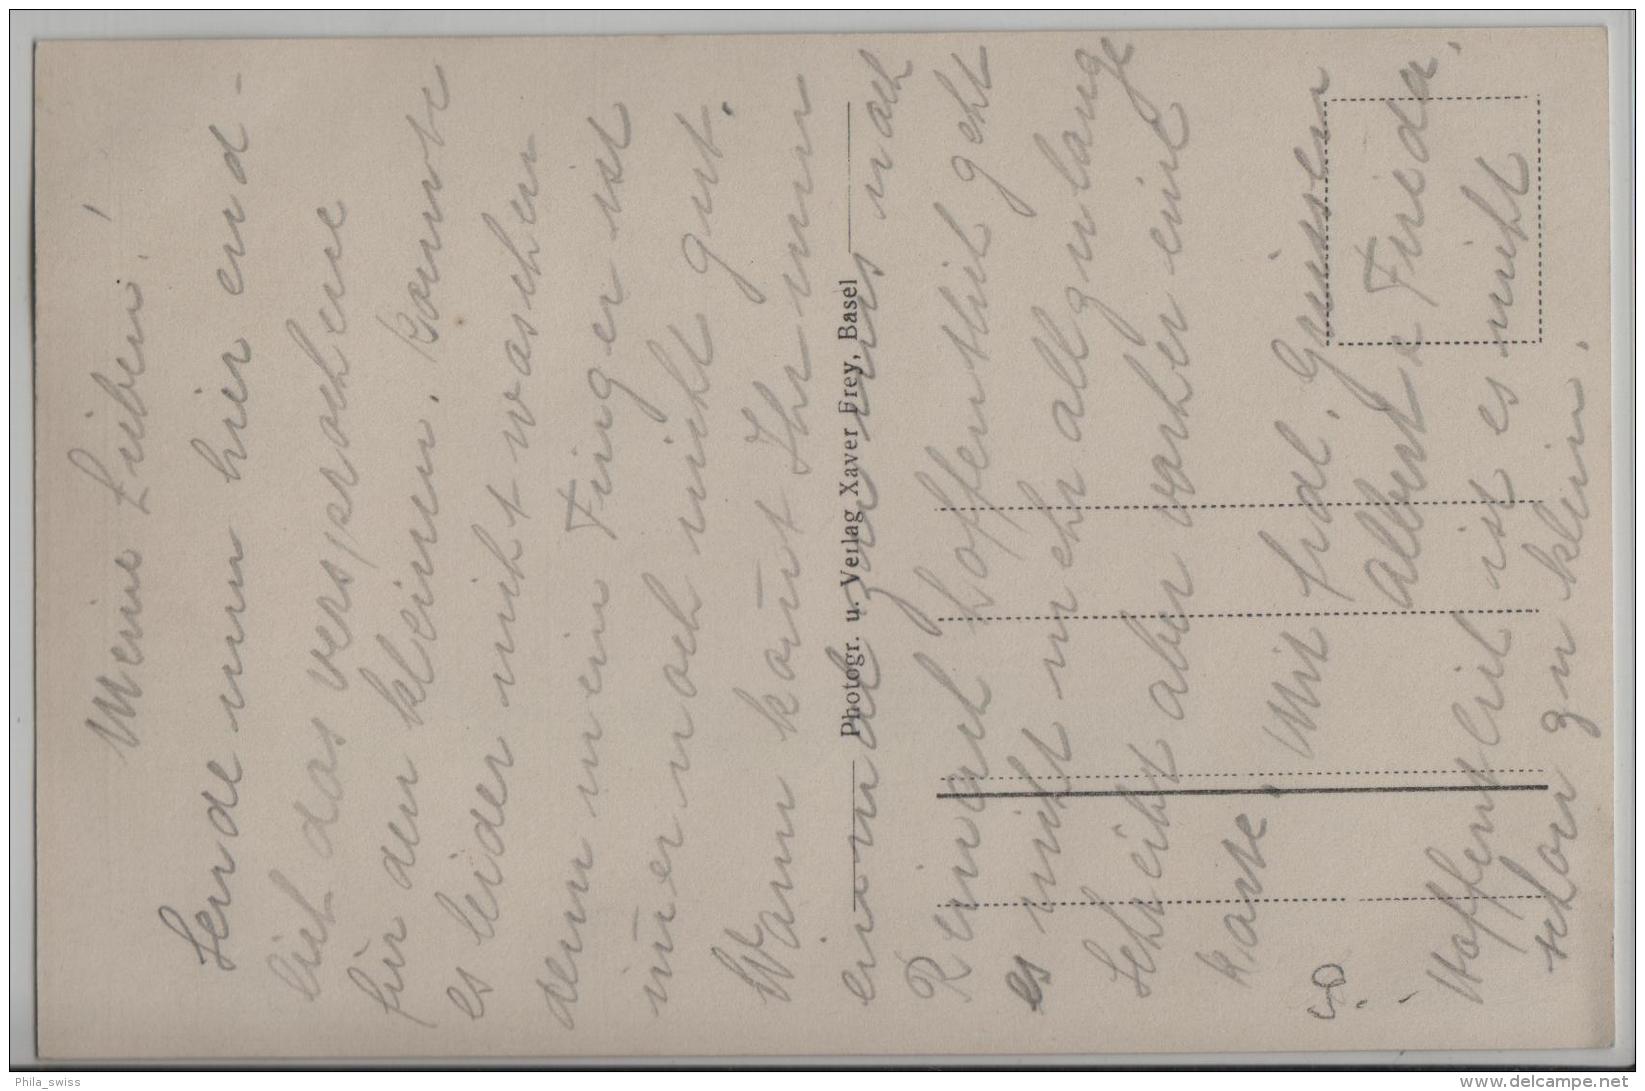 Meine Lieben!
Sende nun hier end-
lich das versprochene
für den kleinen. Konnte
es leider nicht waschen
denn mein Finger ist
im̄er noch nicht gut.
Wann kom̄t Ihr nun
einmal zu uns nach
Reinach hoffentlich geht
es nicht mehr allzu lange
Schreibt aber vorher eine
Karte.
Mit frdl. Grüssen
Albert & Frieda.
Hoffentlich ist es nicht
schon zu klein.
Photogr. u. Verlag Xaver Frey, Basel
Phila_swiss
delcampe.net